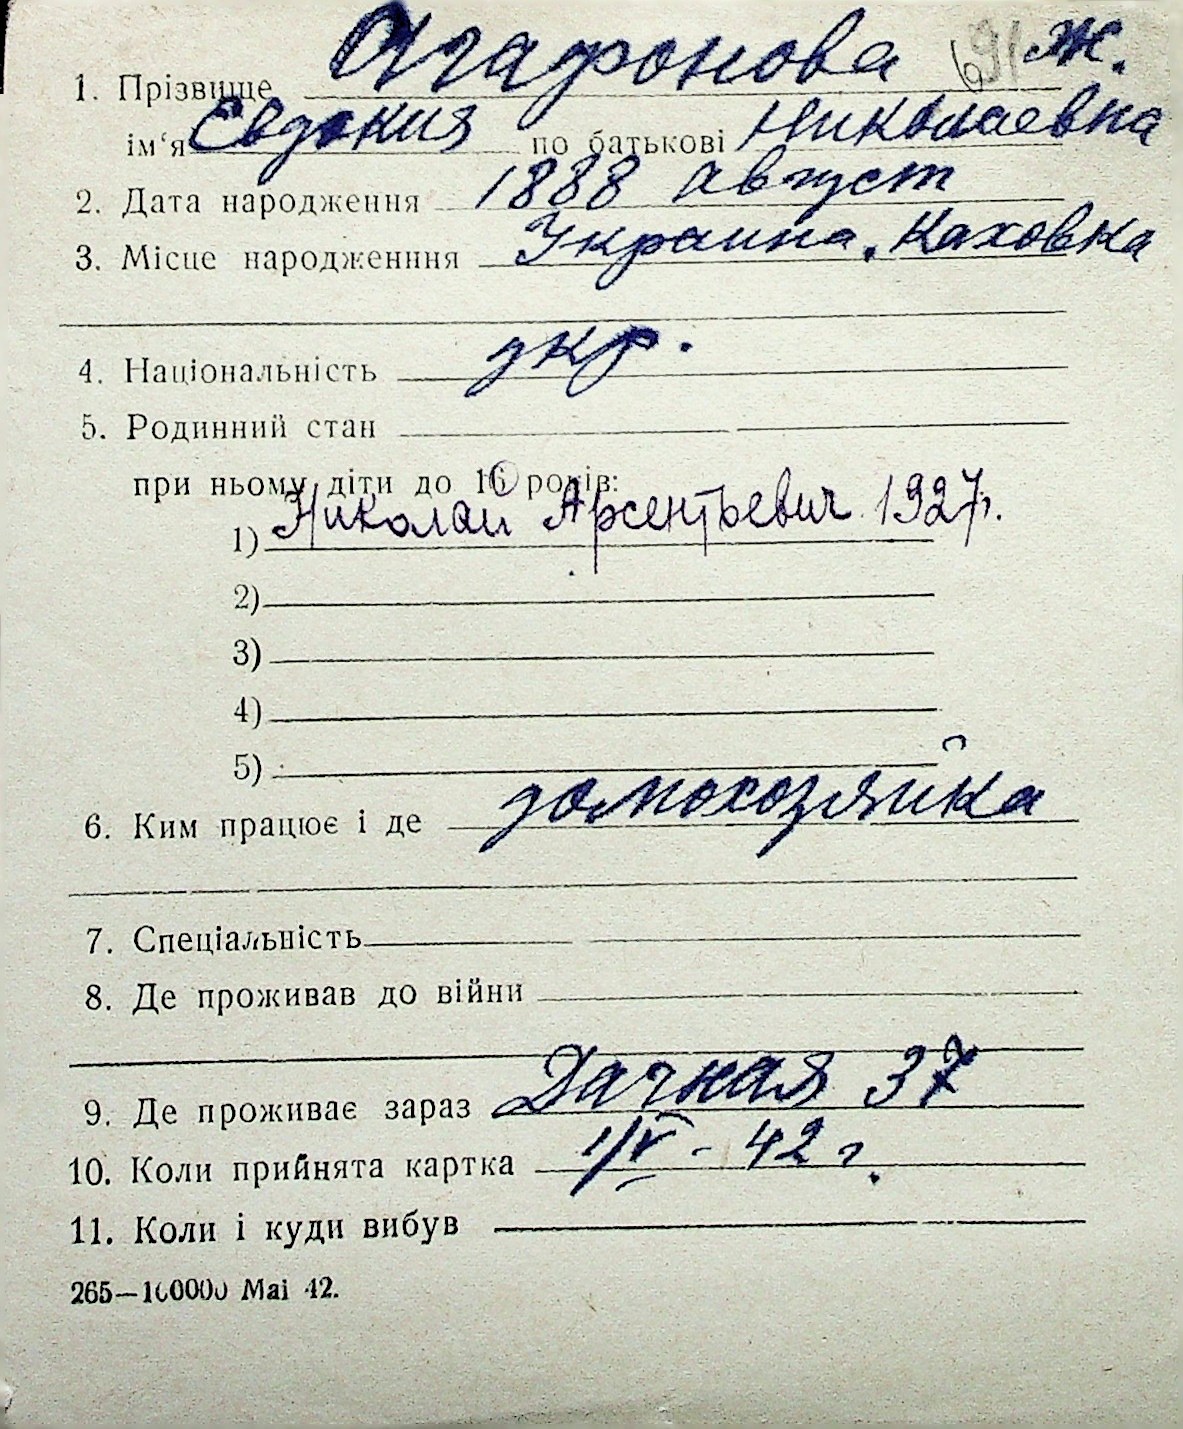 1. Прізвище Агафонова 691 ж.
ім'я Євдокия по батькові Николаевна
2. Дата народження 1888 август
3. Місце народженння Украина. Каховка
4. Національність укр.
5. Родинний стан
при ньому діти до 16 років:
1) Николай Арсентьевич 1927г.
2)
3)
4)
5)
6. Ким працює і де домохозяйка
7. Спеціальність
8. Де проживав до війни
9. Де проживає зараз Дачная 37
10. Коли прийнята картка 1/V - 42 г.
11. Коли і куди вибув
265—100000 Mai 42.